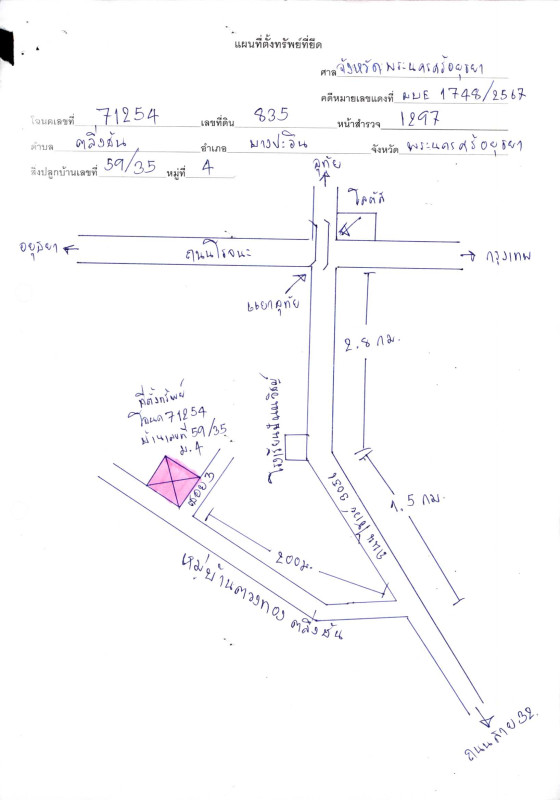 แผนที่ตั้งทรัพย์ที่ยึด
ศาล จังหวัดพระนครศรีอยุธยา
คดีหมายเลขแดงที่ ผบE 1748/2567
โฉนดเลขที่ 71254 เลขที่ดิน 835 หน้าสำรวจ 1297
ตำบล ตลิ่งชัน อำเภอ บางปะอิน จังหวัด พระนครศรีอยุธยา
สิ่งปลูกบ้านเลขที่ 59/35 หมู่ที่ 4
อุทัย
โลตัส
อยุธยา
ถนนโรจนะ
กรุงเทพ
แยกอุทัย
2.8 กม.
ที่ตั้งทรัพย์
โฉนด 71254
บ้านเลขที่ 59/35
ม.4
ซอย 3
1.5 กม.
200ม.
หมู่บ้านดวงทอง ตลิ่งชัน
ถนนสาย 32